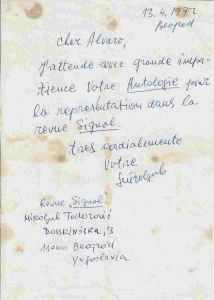 13.4.1972
Beograd
Cher Alvaro,
J'attende avec grande impa-
tience Votre Antologie pour
la representation dans la
revue Signal.
tres cordialement
Votre
Miroljub
Revue „Signal“
Miroljub Todorović
Dobrinjska, 3
11000 Beograd
Yugoslavia